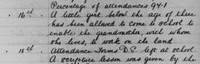 Percentage of attendance 94.1
" 16th. A little girl below the age of three
has been allowed to come to school to
enable the grandmother, with whom
she lives, to work on the land.
" 18th. Attendance Forms D.S. left at school
A scripture lesson was given by the